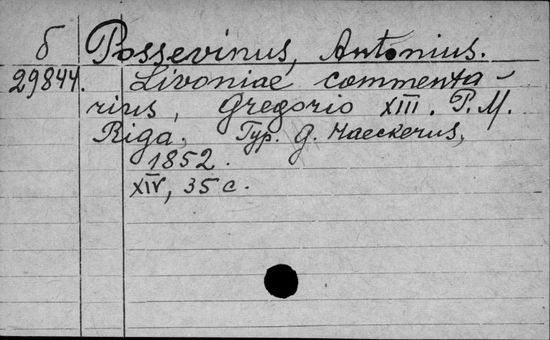 б Possevinus, Antonius.
29844. Livoniae commenta-
rius, Gregorio XIII. P. M.
Riga, Typ. G. Haeckerus,
1852.
XIV, 35 c.